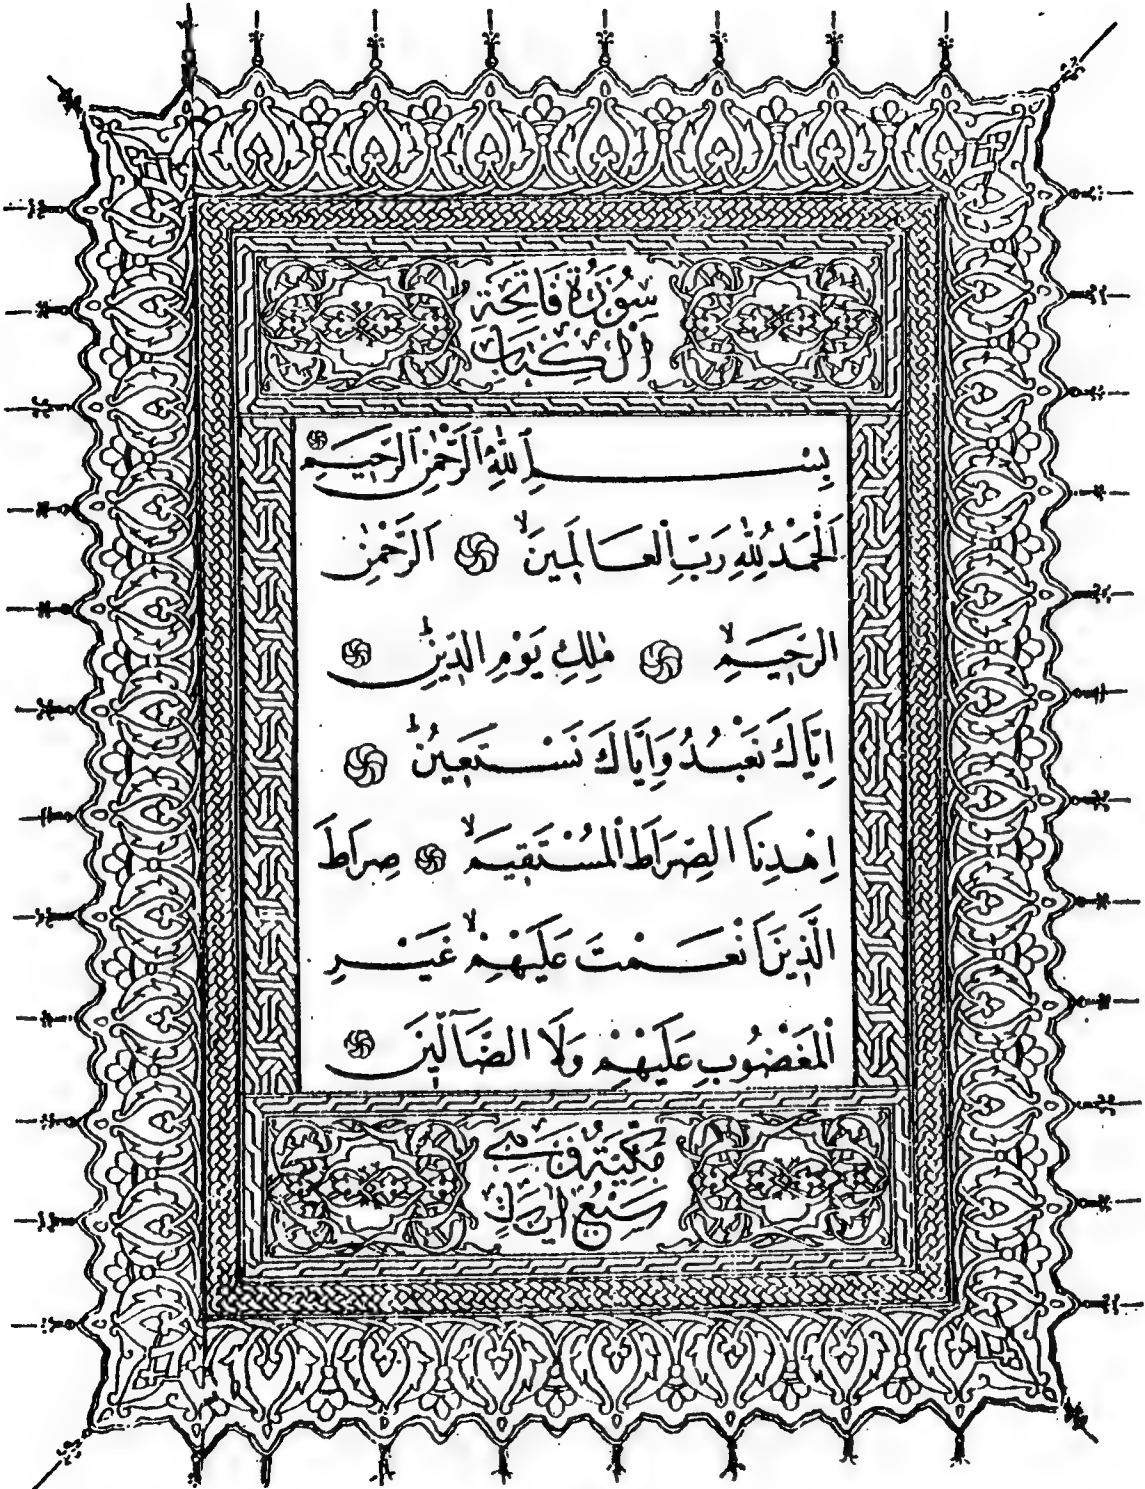 سُورَةُ فَاتِحَةِ
الْكِتَابِ
بِسْــــمِ اللّٰهِ الرَّحْمٰنِ الرَّحِيمِ
اَلْحَمْدُ لِلّٰهِ رَبِّ الْعَالَمِينَۙ اَلرَّحْمٰنِ
الرَّحِيمِۙ مٰلِكِ يَوْمِ الدِّينِۜ
اِيَّاكَ نَعْبُدُ وَاِيَّاكَ نَسْتَعِينُۜ
اِهْدِنَا الصِّرَاطَ الْمُسْتَقِيمَۙ صِرَاطَ
الَّذِينَ اَنْعَمْتَ عَلَيْهِمْۙ غَيْرِ
الْمَغْضُوبِ عَلَيْهِمْ وَلَا الضَّالِّينَ
مَكِّيَّةٌ وَهِيَ
سَبْعُ اٰيَاتٍ